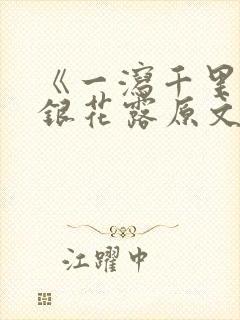 《一瀉千里
銀花露原文
江躍中